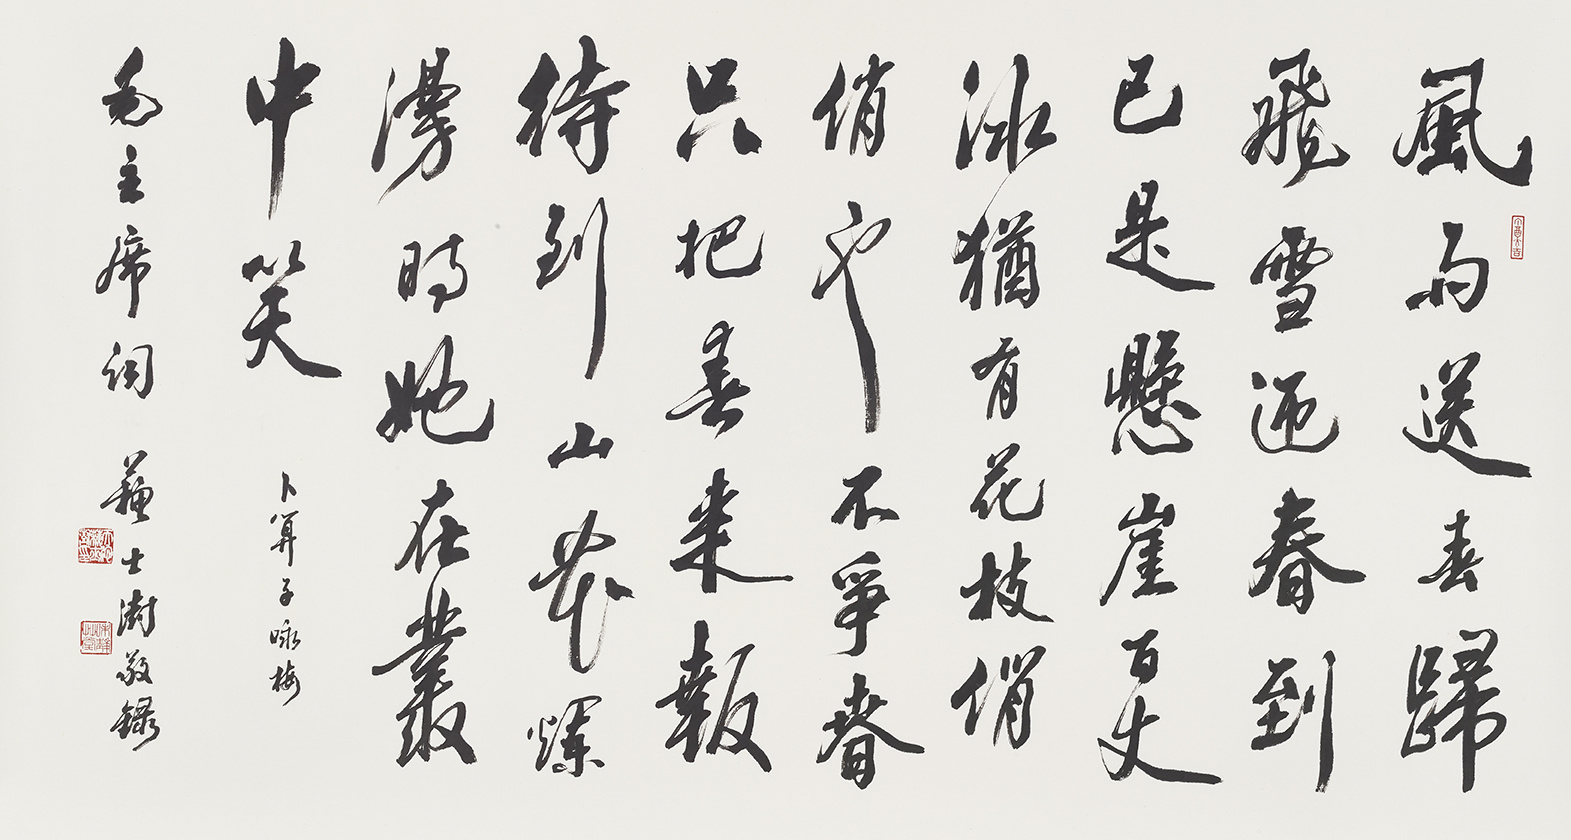 風雨送春歸
飛雪迎春到
已是懸崖百丈
冰猶有花枝俏
俏也不爭春
只把春來報
待到山花爛
漫時她在叢
中笑
卜算子咏梅
毛主席詞 蘇士澍敬録